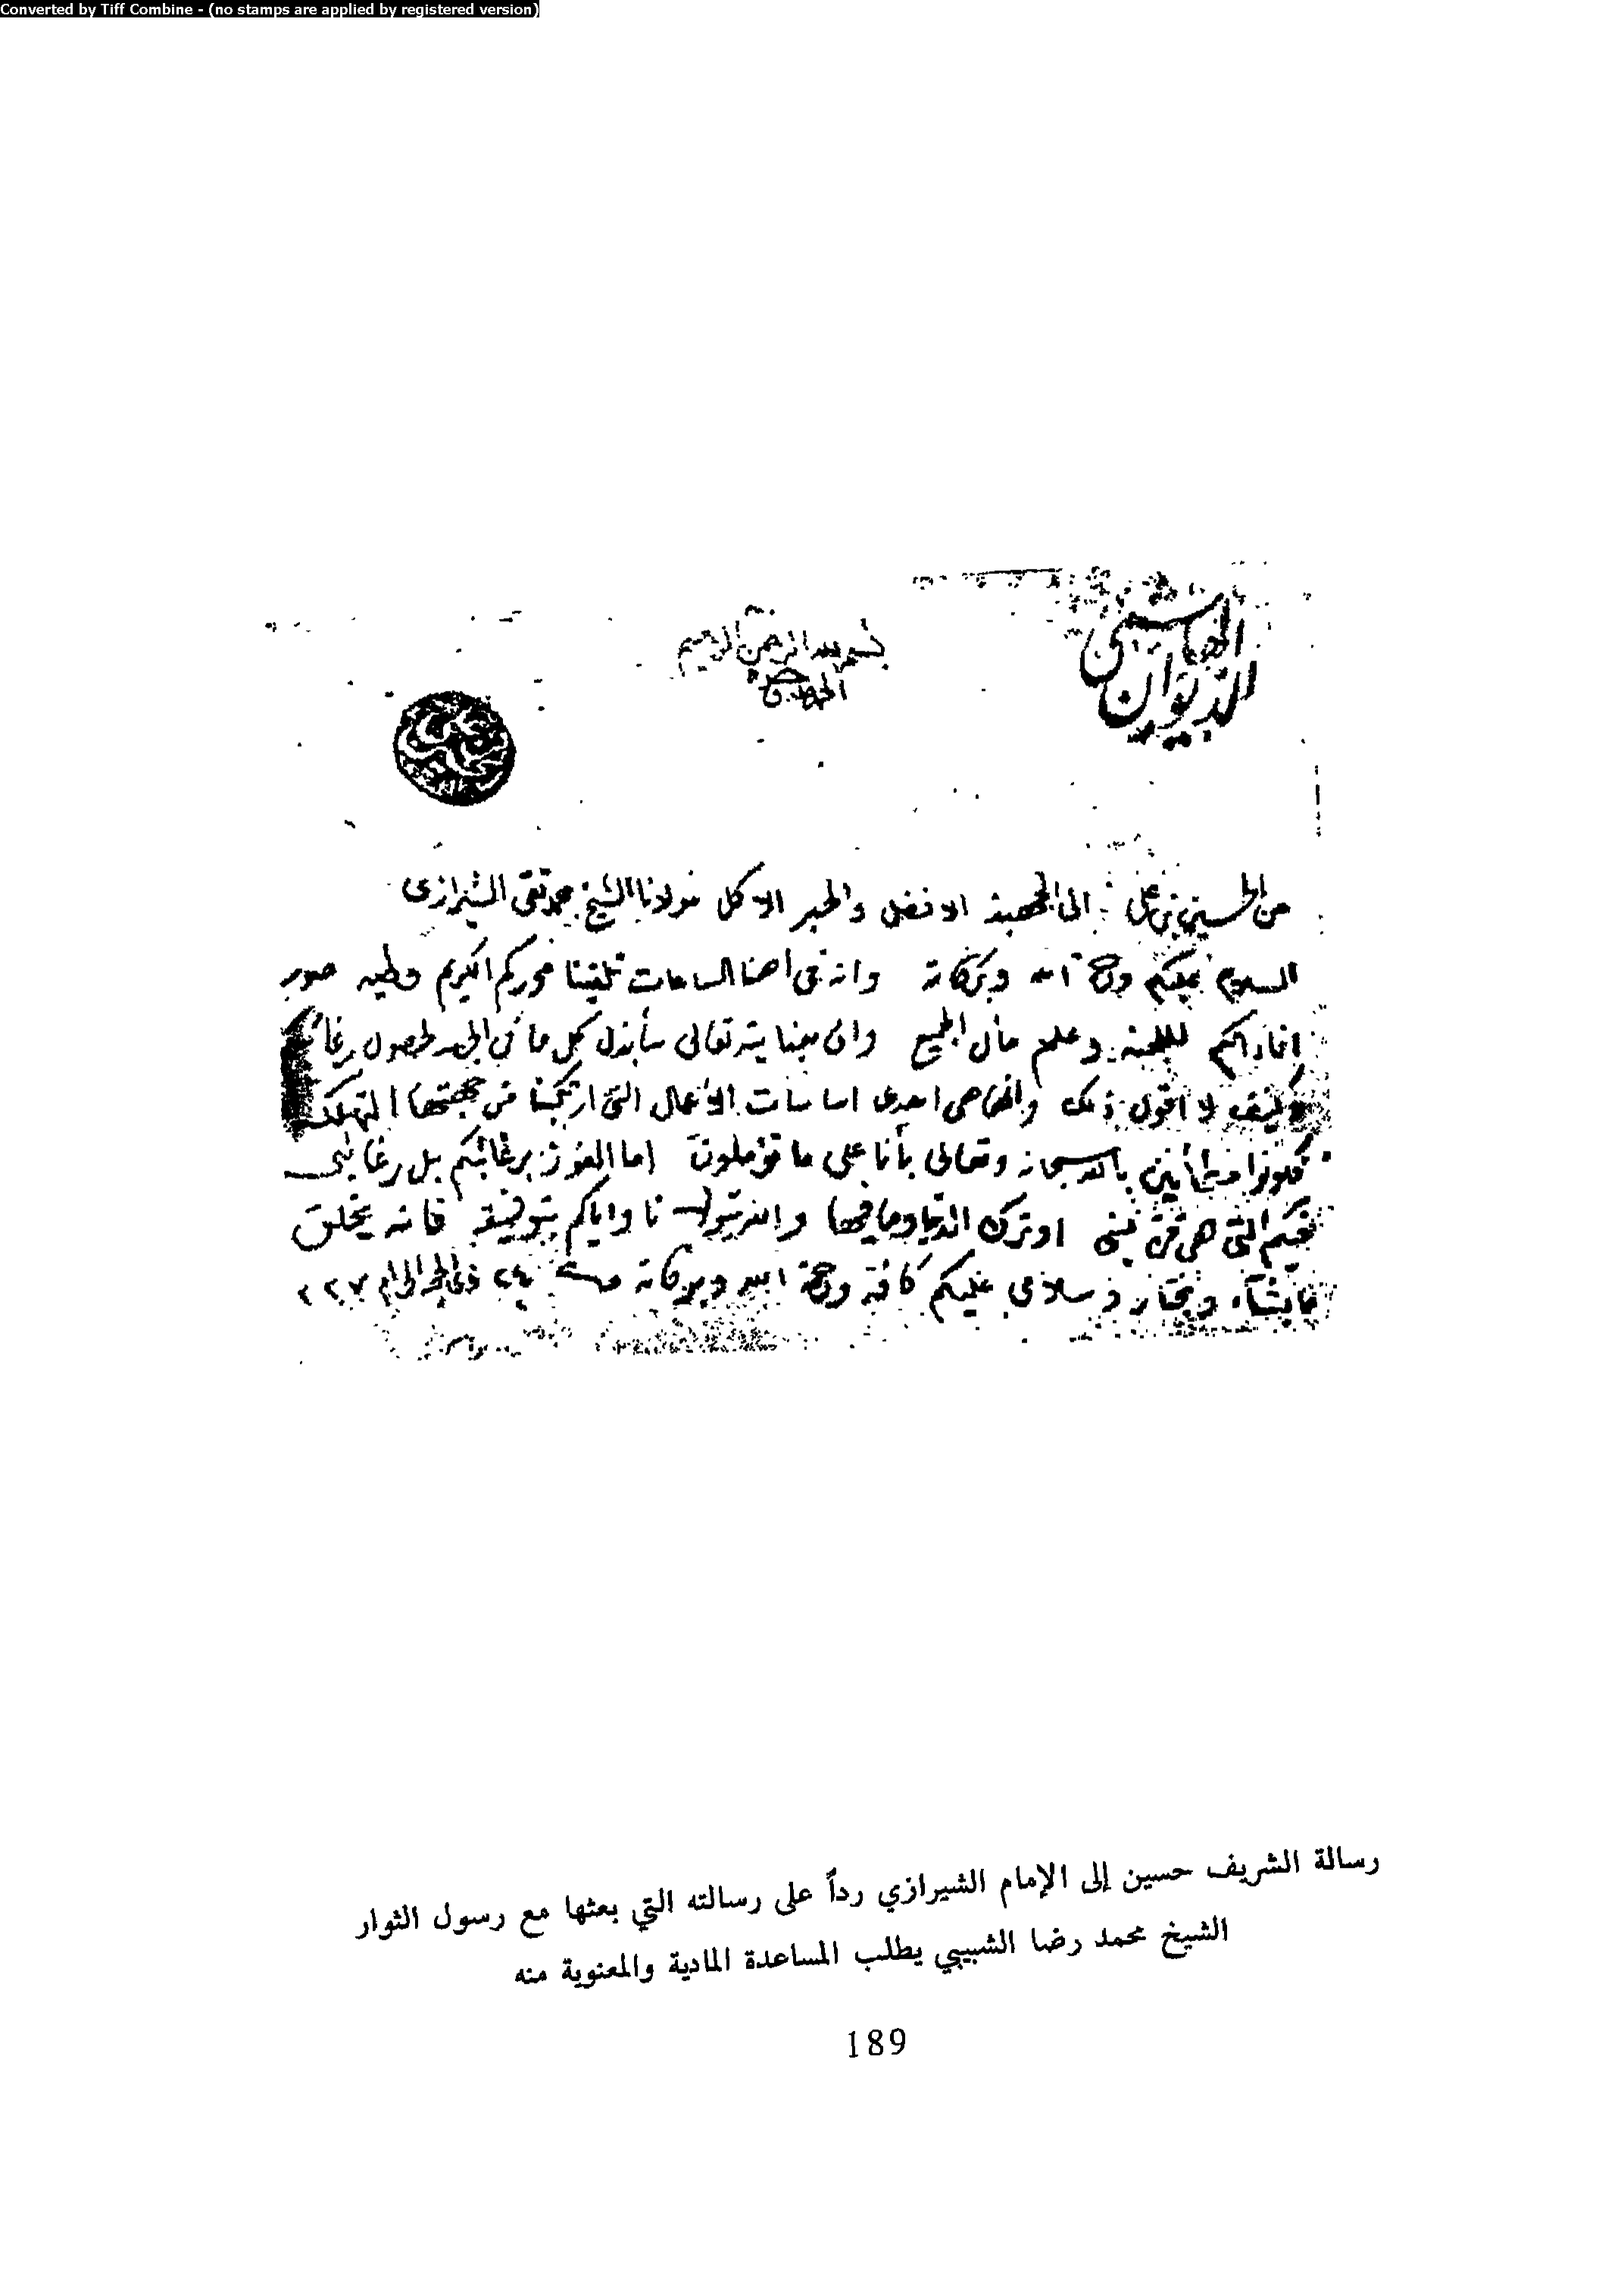 Converted by Tiff Combine - (no stamps are applied by registered version)
الديوان الهاشمي
بسم الله الرحمن الرحيم
الحمد لله
من الحسين بن علي الى الجهبذ الافضل والحبر الاكمل مولانا الشيخ محمد تقي الشيرازي
السلام عليكم ورحمة الله وبركاته وانه في اهنا الساعات تلقينا محرركم الكريم وطيه صور
للجنة وعلم مآل الجميع وان بعنايته تعالى سأبذل كل ما في لحصول
وكيف لا اقول ذلك وانها هي احدى اساسات الأعمال التي ارتكبنا من جهتها
فكونوا مطمأنين بالله سبحانه وتعالى بأنا على ما تؤملون اما الفوز برغائبكم بل رغائبي
التي هي او ترك الدنيا وما فيها والله يتولانا واياكم بتوفيقه فانه يخلق
ما يشاء ويختار وسلامي عليكم كافة ورحمة الله وبركاته ٢٤ ذي الحجة الحرام
رسالة الشريف حسين إلى الإمام الشيرازي رداً على رسالته التي بعثها مع رسول الثوار
الشيخ محمد رضا الشبيبي يطلب المساعدة المادية والمعنوية منه
189